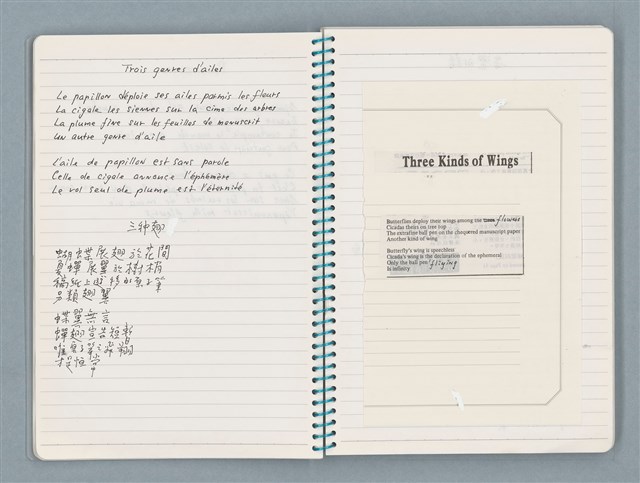 Trois genres d'ailes
Le papillon déploie ses ailes parmis les fleurs
La cigale les siennes sur la cime des arbres
La plume fine sur les feuilles de manuscrit
Un autre genre d'aile
L'aile de papillon est sans parole
Celle de cigale annonce l'éphémère
Le vol seul de plume est l'éternité
三种翅
蝴蝶展翅於花間
夏蟬展翼於樹梢
稿紙上遊移的原子筆
另類翅翼
蝶翼無言
蟬翅宣告短暫
唯原子筆之飛翔
是恒常
Three Kinds of Wings
Butterflies deploy their wings among the flowers
Cicadas theirs on tree top
The extrafine ball pen on the chequered manuscript paper
Another kind of wing
Butterfly's wing is speechless
Cicada's wing is the declaration of the ephemeral
Only the ball pen flying
Is infinity